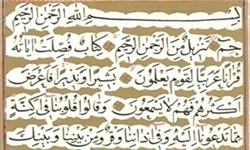 بسم الله الرحمن الرحيم
حم تنزيل من الرحمن الرحيم كتاب فصلت اياته
قرانا عربيا لقوم يعلمون بشيرا ونذيرا فاعرض
اكثرهم فهم لا يسمعون وقالوا قلوبنا في اكنة
مما تدعونا اليه وفي اذاننا وقر ومن بيننا وبينك